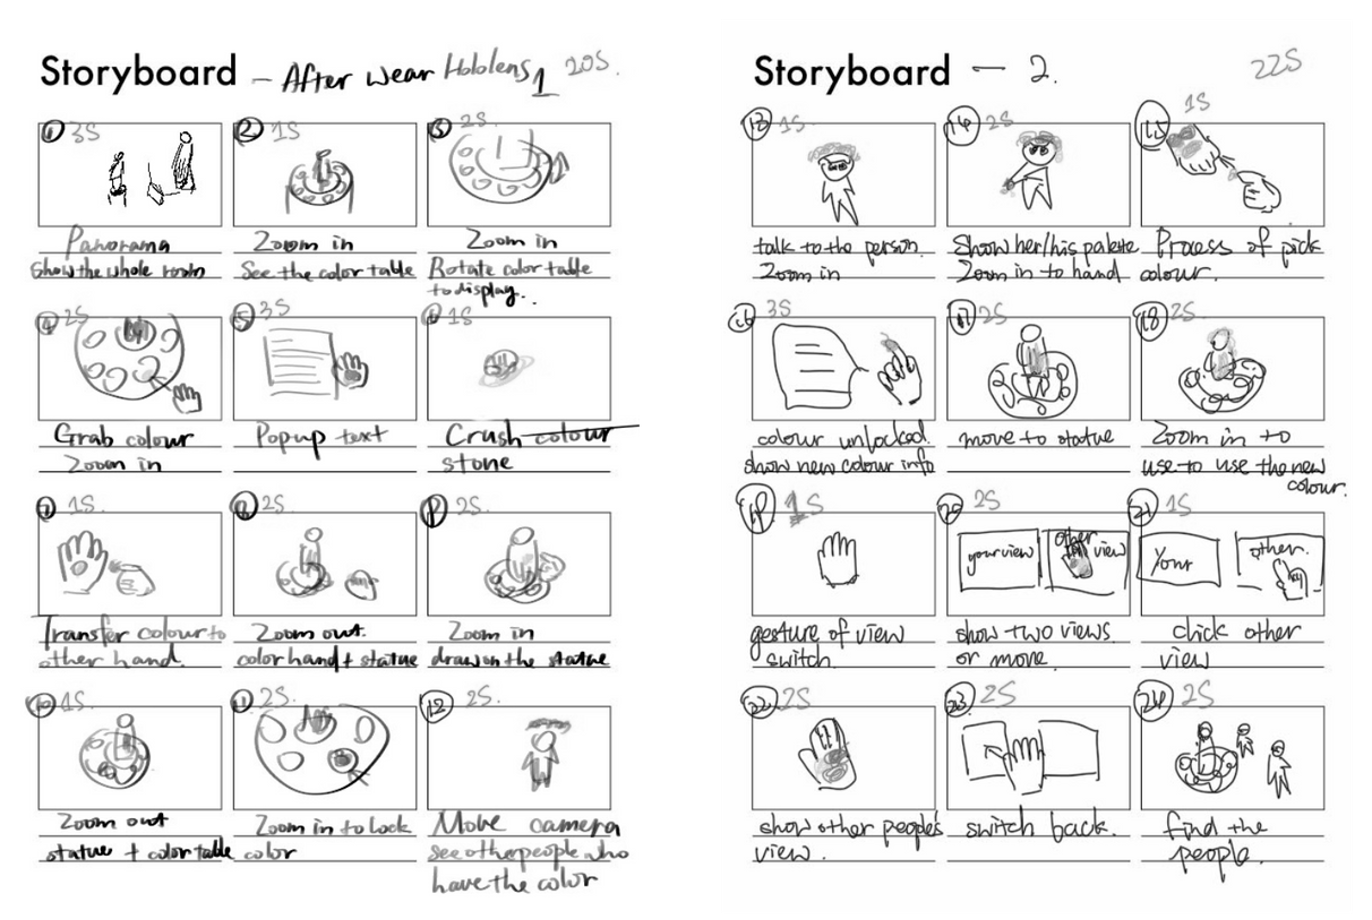 Storyboard - After wear Hololens 1 20S.
1 3S
Panorama
Show the whole room
2 1S
Zoom in
See the color table
3 2S
Zoom in
Rotate color table
to display..
4 2S
Grab colour
Zoom in
5 3S
Popup text
6 1S
Crush colour
stone
7 1S
Transfer colour to
other hand.
8 2S
Zoom out.
color hand + statue
9 2S
Zoom in
draw on the statue
10 1S
Zoom out
statue + color table
11 2S.
Zoom in to lock
color
12 2S.
Move camera
see other people who
have the color
Storyboard - 2. 22S
13 1S
talk to the person.
Zoom in
14 2S
Show her/his palete
Zoom in to hand
15 1S
Process of pick
colour.
16 3S
colour unlocked.
show new colour info
17 2S
move to statue
18 2S
Zoom in to
use to use the new
colour.
19 1S
gesture of view
switch.
20 2S
your view
other view
show two views.
or move.
21 1S
Your
other.
click other
view
22 2S
show other people's
view.
23 2S
switch back.
24 2S
find the
people.